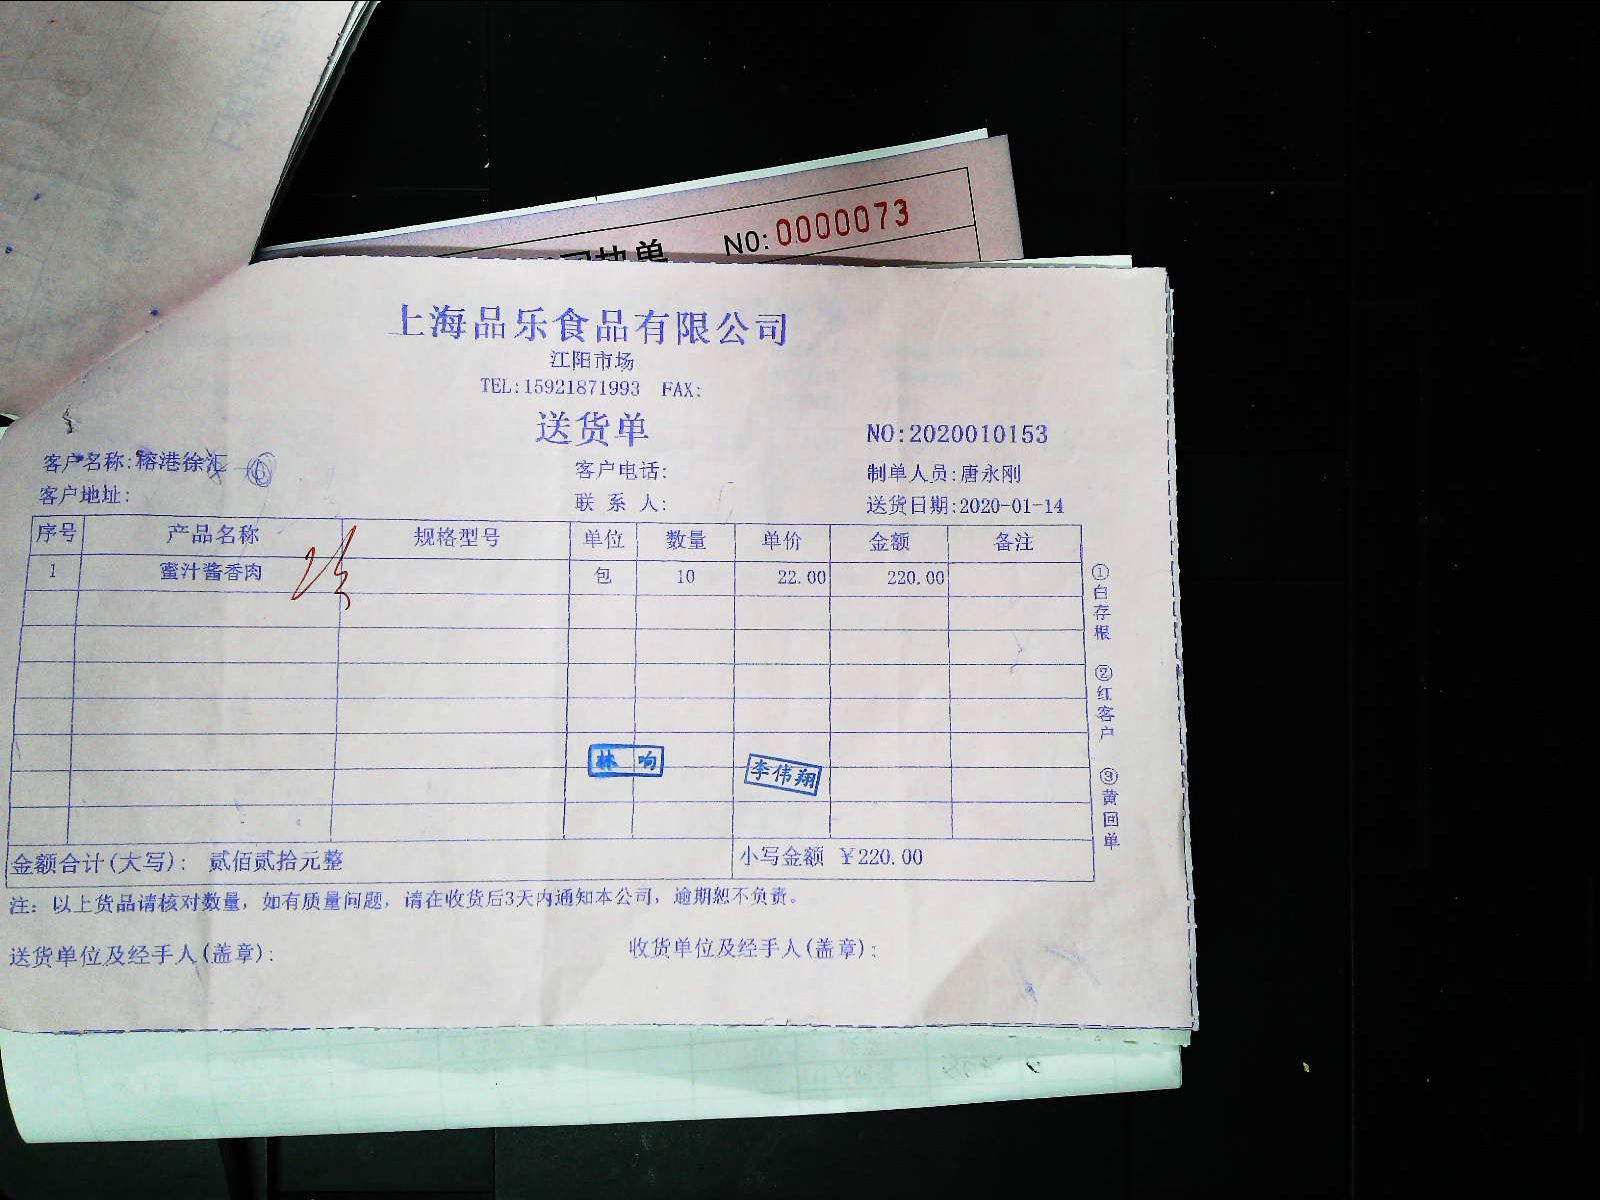 NO:0000073
上海品乐食品有限公司
江阳市场
TEL:15921871993 FAX:
送货单
NO:2020010153
客户名称:榕港徐汇 ⑥
客户电话:
制单人员:唐永刚
客户地址:
联 系 人:
送货日期:2020-01-14
序号 产品名称 规格型号 单位 数量 单价 金额 备注
1 蜜汁酱香肉 包 10 22.00 220.00
①白存根 ②红客户 ③黄回单
林 响
李伟翔
金额合计(大写): 贰佰贰拾元整 小写金额 ¥220.00
注: 以上货品请核对数量, 如有质量问题, 请在收货后3天内通知本公司, 逾期恕不负责。
送货单位及经手人(盖章): 收货单位及经手人(盖章):